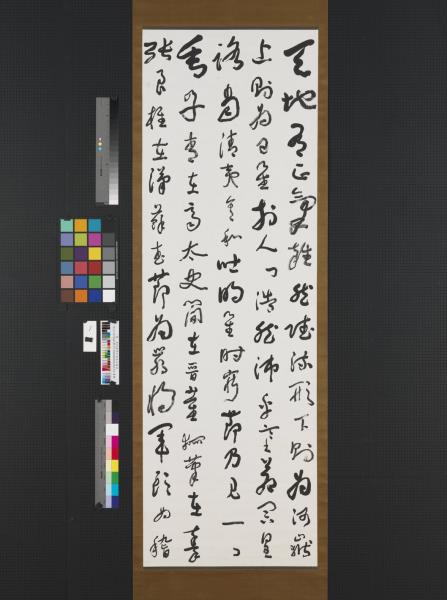 天地有正氣雜然賦流形下則為河嶽
上則為日星於人曰浩然沛乎塞蒼冥皇
路當清夷含和吐明庭時窮節乃見一々
垂丹青在齊太史簡在晉董狐筆在秦
張良椎在漢蘇武節為嚴將軍頭為嵇